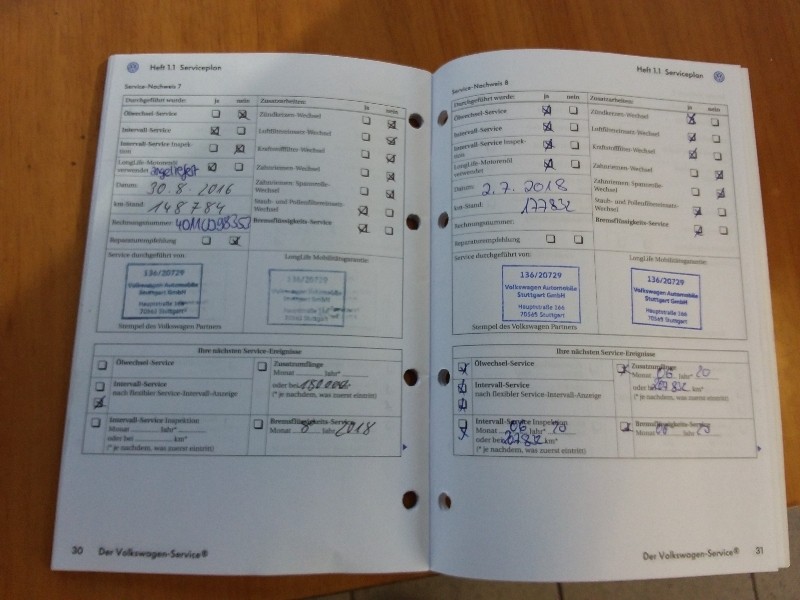 Heft 1.1 Serviceplan
Service-Nachweis 7
Durchgeführt wurde: ja nein
Ölwechsel-Service
Intervall-Service
Intervall-Service Inspek-
tion
LongLife-Motorenöl
verwendet angeliefert
Datum: 30.8.2016
km-Stand: 148784
Rechnungsnummer:
Reparaturempfehlung
Service durchgeführt von:
136/20729
Volkswagen Automobile
Stuttgart GmbH
Hauptstraße 166
70565 Stuttgart
Stempel des Volkswagen Partners
Zusatzarbeiten: ja nein
Zündkerzen-Wechsel
Luftfiltereinsatz-Wechsel
Kraftstofffilter-Wechsel
Zahnriemen-Wechsel
Zahnriemen- Spannrolle-
Wechsel
Staub- und Pollenfiltereinsatz-
Wechsel
Bremsflüssigkeits-Service
LongLife Mobilitätsgarantie:
136/20729
Volkswagen Automobile
Stuttgart GmbH
Hauptstraße 166
70565 Stuttgart
Ihre nächsten Service-Ereignisse
Ölwechsel-Service
Intervall-Service
nach flexibler Service-Intervall-Anzeige
Intervall-Service Inspektion
Monat Jahr*
oder bei km*
(* je nachdem, was zuerst eintritt)
Zusatzumfänge
Monat Jahr*
oder bei 180.000
(* je nachdem, was zuerst eintritt)
Bremsflüssigkeits-Service
Monat 8 Jahr 2018
30 Der Volkswagen-Service®
Heft 1.1 Serviceplan
Service-Nachweis 8
Durchgeführt wurde: ja nein
Ölwechsel-Service
Intervall-Service
Intervall-Service Inspek-
tion
LongLife-Motorenöl
verwendet
Datum: 2.7.2018
km-Stand: 177832
Rechnungsnummer:
Reparaturempfehlung
Service durchgeführt von:
136/20729
Volkswagen Automobile
Stuttgart GmbH
Hauptstraße 166
70565 Stuttgart
Stempel des Volkswagen Partners
Zusatzarbeiten: ja nein
Zündkerzen-Wechsel
Luftfiltereinsatz-Wechsel
Kraftstofffilter-Wechsel
Zahnriemen-Wechsel
Zahnriemen- Spannrolle-
Wechsel
Staub- und Pollenfiltereinsatz-
Wechsel
Bremsflüssigkeits-Service
LongLife Mobilitätsgarantie:
136/20729
Volkswagen Automobile
Stuttgart GmbH
Hauptstraße 166
70565 Stuttgart
Ihre nächsten Service-Ereignisse
Ölwechsel-Service
Intervall-Service
nach flexibler Service-Intervall-Anzeige
Intervall-Service Inspektion
Monat 06 Jahr* 20
oder bei 207832 km*
(* je nachdem, was zuerst eintritt)
Zusatzumfänge
Monat 06 Jahr* 20
oder bei 207832 km*
(* je nachdem, was zuerst eintritt)
Bremsflüssigkeits-Service
Monat 06 Jahr
Der Volkswagen-Service® 31